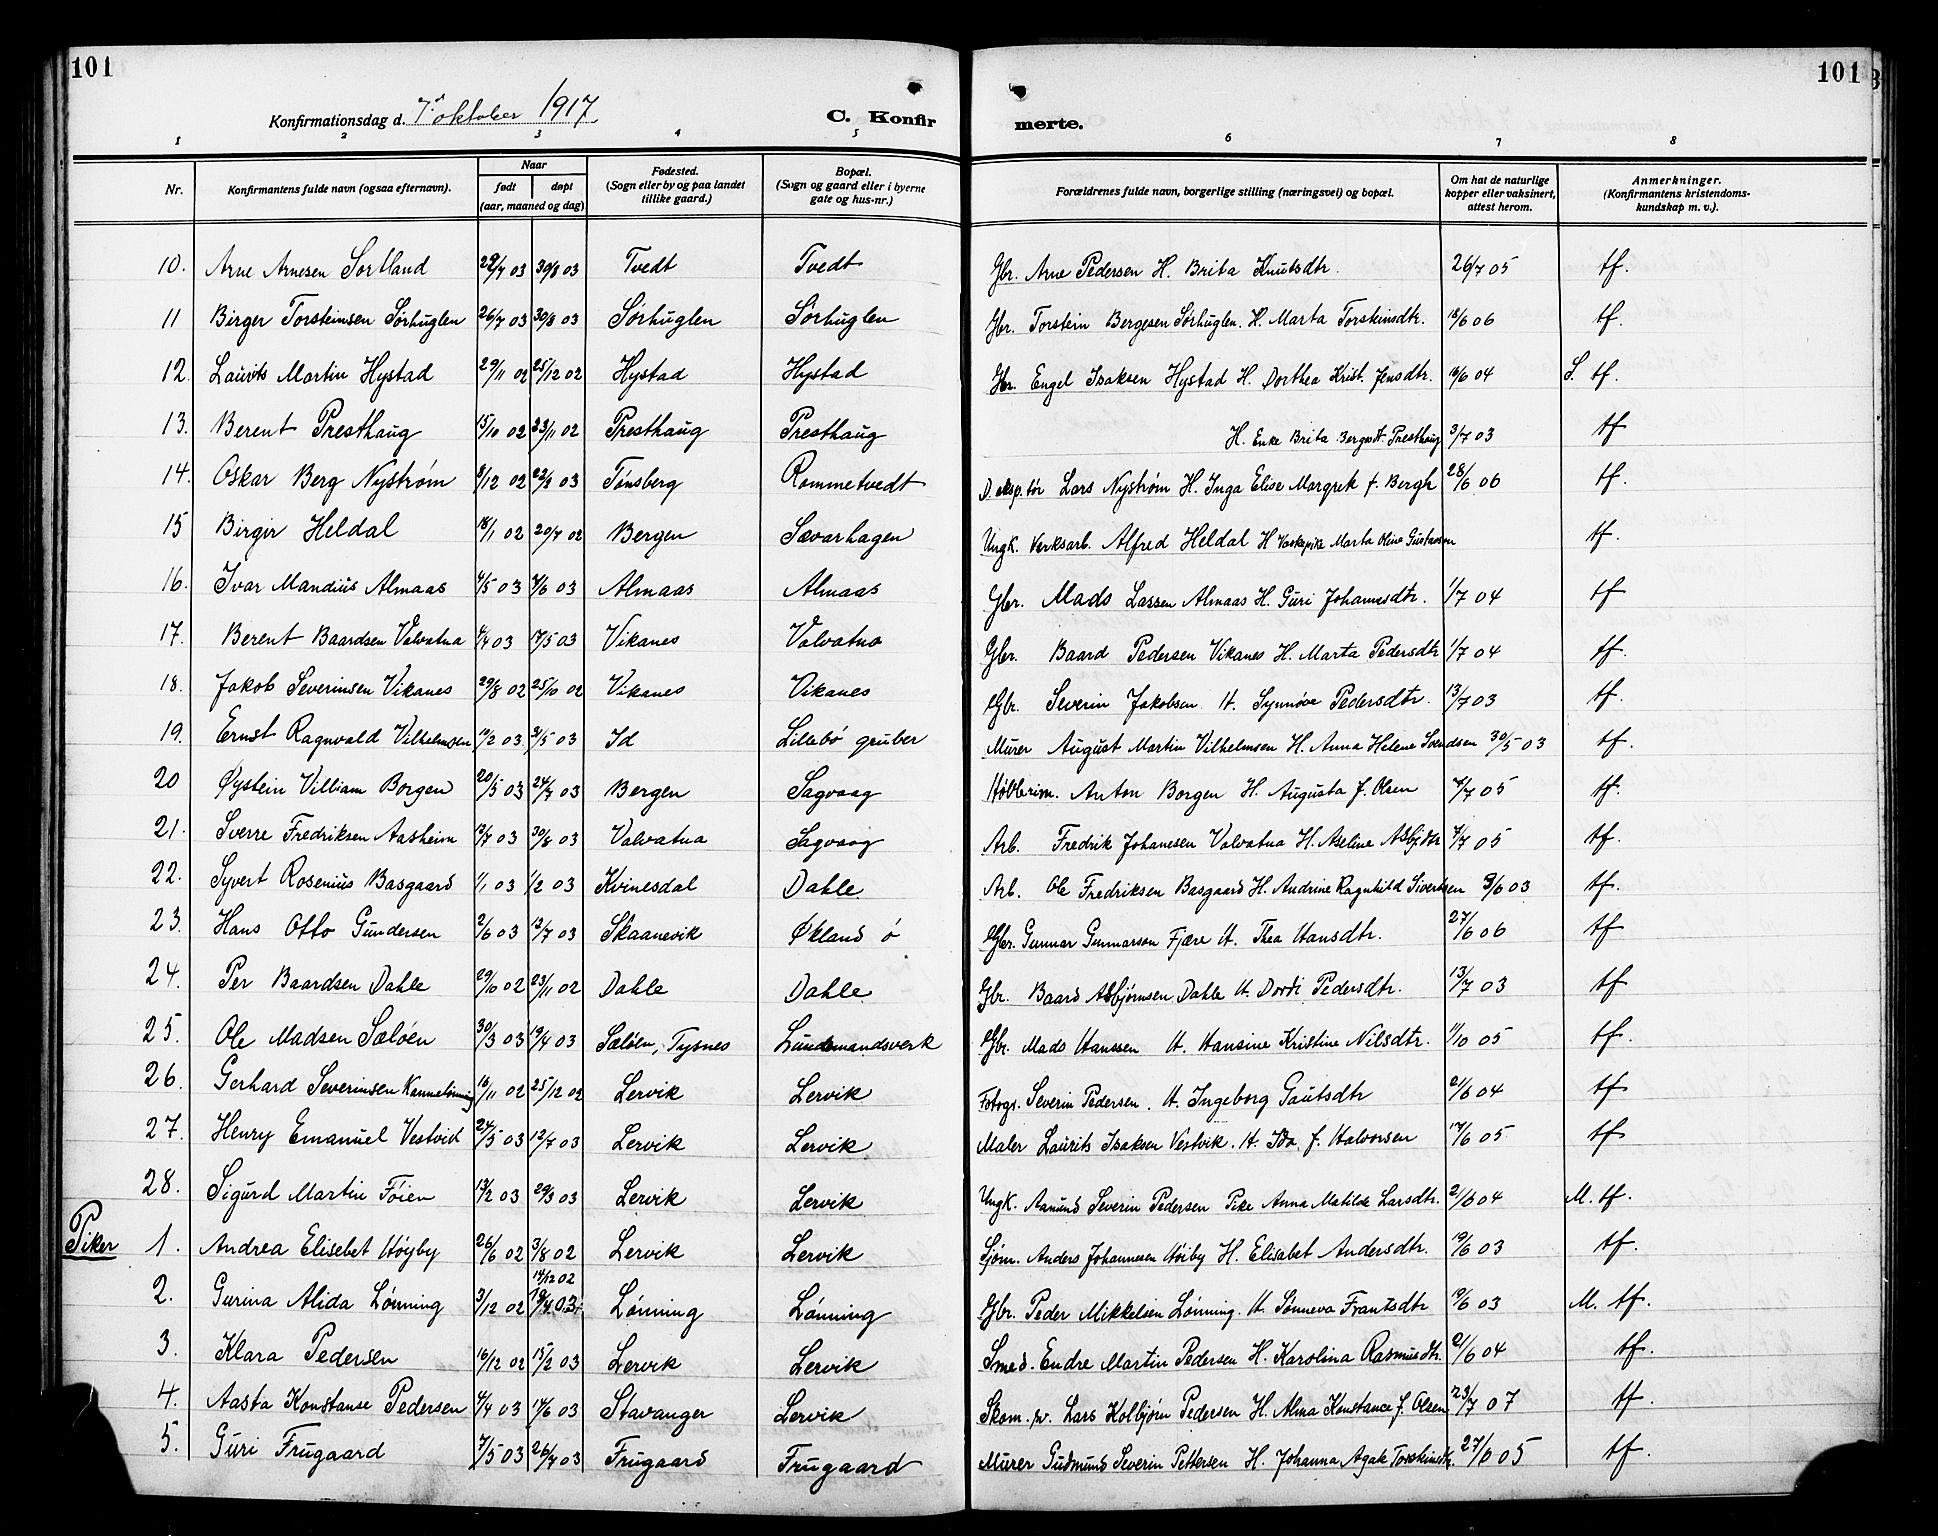 101 101
Konfirmationsdag d. 7. oktober 1917. C. Konfir merte.
1 2 3 4 5 6 7 8
Nr. Konfirmantens fulde navn (ogsaa efternavn). Naar født døpt (aar, maaned og dag) Fødested. (Sogn eller by og paa landet tillike gaard.) Bopæl. (Sogn og gaard eller i byerne gate og hus-nr.) Forældrenes fulde navn, borgerlige stilling (næringsvei) og bopæl. Om hat de naturlige kopper eller vaksinert, attest herom. Anmerkninger. (Konfirmantens kristendoms-kundskap m. v.).
10. Arne Arnesen Sortland 29/7 03 30/8 03 Tvedt Tvedt Gbr. Arne Pedersen H. Brita Knutsdtr. 26/7 05 tf.
11 Birger Torsteinsen Sørhuglen 26/7 03 30/8 03 Sørhuglen Sørhuglen Gbr. Torstein Bergesen Sørhuglen. H. Marta Torsteinsdtr. 18/6 06 tf.
12. Laurits Martin Hystad 29/11 02 25/12 02 Hystad Hystad Gbr. Engel Isaksen Hystad H. Dorthea Krist. Jensdtr. 16/6 04 S. tf.
13. Berent Presthaug 15/10 02 23/11 02 Presthaug Presthaug H. Enke Brita Bergesdt. Presthaug 3/7 03 tf
14. Oskar Berg Nystrøm 8/12 02 22/3 03 Tønsberg Rommetvedt D. eksp.tør Lars Nystrøm H. Inga Elise Margrete f. Bergh 28/6 06 tf.
15 Birger Heldal 18/1 02 20/7 02 Bergen Sævarhagen Ungk. Verksarb. Alfred Heldal H Vaskepike Marta Oline Gustavsen tf.
16. Ivar Mandius Almaas 4/5 03 7/6 03 Almaas Almaas Gbr. Mads Larsen Almaas H. Guri Johannesdtr. 1/7 04 tf
17. Berent Baardsen Valvatna 4/4 03 17/5 03 Vikanes Valvatna Gbr. Baard Pedersen Vikanes H. Marta Pedersdtr 1/7 04 tf.
18. Jakob Severinsen Vikanes 29/8 02 25/10 02 Vikanes Vikanes Gbr. Severin Jakobsen. H. Synnøve Pedersdtr. 13/7 03 tf.
19. Ernst Ragnvald Vilhelmsen 19/2 03 31/5 03 Id Lillebø gruber Murer August Martin Vilhelmsen H. Anna Helene Svendsen 30/5 03 tf.
20 Øystein Villiam Borgen 20/5 03 24/7 03 Bergen Sagvaag Anton Borgen H. Augusta f. Olsen 4/7 05 tf.
21. Sverre Fredriksen Aasheim 13/7 03 30/8 03 Valvatna Sagvaag Arb. Fredrik Johanesen Valvatna H. Aseline Asbjdtr 4/7 05 tf.
22. Syvert Rosenius Basgaard 1/1 03 1/2 03 Kvinesdal Dahle. Arb. Ole Fredriksen Basgaard H. Andrine Ragnhild Sivertsen 9/6 03 tf.
23. Hans Otto Gundersen 2/6 03 12/7 03 Skaanevik Økland ø Gbr. Gunnar Gunnarson Fjære H. Thea Hansdtr. 27/6 06 tf
24. Per Baardsen Dahle 29/10 02 23/11 02 Dahle Dahle Gbr. Baard Asbjørnsen Dahle H. Dordi Pedersdtr. 13/7 03 tf
25. Ole Madsen Sæløen 30/3 03 19/4 03 Sæløen, Tysnes Lundemandsverk Gbr. Mads Hanssen H. Hansine Kristine Nilsdtr. 11/10 05 tf.
26. Gerhard Severinsen Kannelønning 16/11 02 25/12 02 Lervik Lervik Fotogr. Severin Pedersen. H. Ingeborg Gautsdtr 21/6 04 tf
27. Henry Emanuel Vestvid 24/5 03 12/7 03 Lervik Lervik Maler Laurits Isaksen Vestvik. H. Ida f. Halvorsen 17/6 05 tf
28. Sigurd Martin Føien 13/2 03 29/3 03 Lervik Lervik Ungk. Aamund Severin Pedersen Pike Anna Matilde Larsdtr. 21/6 04 M. tf.
Piker 1. Andrea Elisebet Høyby 26/6 02 3/8 02 Lervik Lervik Sjøm. Anders Johannesen Høiby H. Elisabet Andersdtr. 19/6 03 tf.
14/12 02
2. Gurina Alida Lønning 3/12 02 19/4 03 Lønning Lønning Gbr. Peder Mikkelsen Lønning. H. Sønneva Frantsdtr 9/6 03 M. tf.
3. Klara Pedersen 16/12 02 15/2 03 Lervik Lervik Smed. Endre Martin Pedersen H. Karolina Rasmusdtr. 21/6 04 tf.
4. Aasta Konstanse Pedersen 4/4 03 14/6 03 Stavanger Lervik Skom. Lars Kolbjørn Pedersen H. Alma Konstance f. Olsen. 23/7 07 tf.
5. Guri Frugaard 7/5 03 26/7 03 Frugaard Frugaard Murer Gudmund Severin Pettersen H. Johanna Agate Torsteinsdtr. 27/6 05 tf.